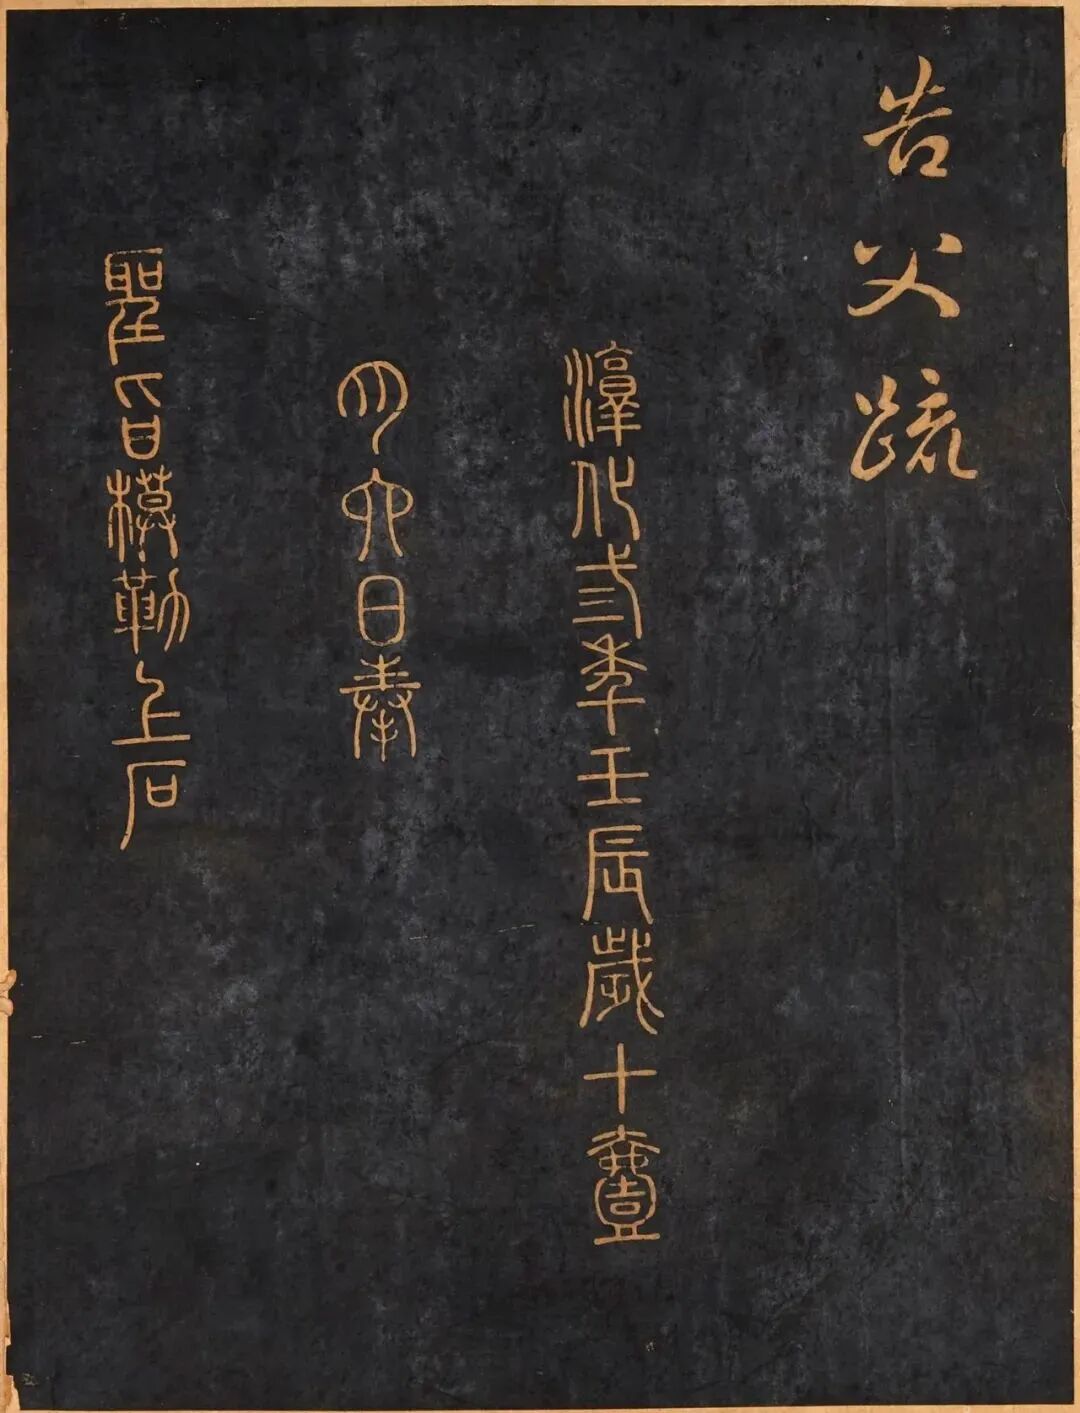 告父疏
淳化三年壬辰歲十壹
月六日奉
聖旨模勒上石